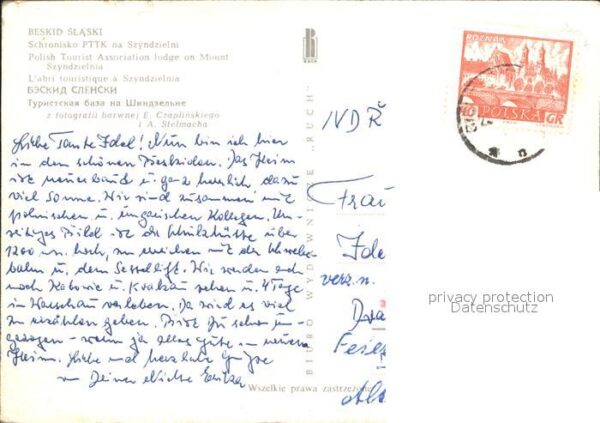 BESKID ŚLĄSKI
Schronisko PTTK na Szyndzielni
Polish Tourist Association lodge on Mount
Szyndzielnia
L'abri touristique à Szyndzielnia
БЭСКИД СЛЕНСКИ
Туристская база на Шиндзельне
z fotografii barwnej E. Czaplińskiego
i A. Stelmacha
Liebe Tante Idel! Nun bin ich hier
in den schönen Beskiden. Das Heim
ist neuerbaut u. ganz herrlich, dazu
viel Sonne. Wir sind zusammen mit
polnischen u. ungarischen Kollegen. Um-
seitiges Bild ist die Schutzhütte über
1200 m hoch, zu erreichen mit der Schwebe-
bahn u. dem Sessellift. Wir werden auch
noch u. Krakau sehen u. 4 Tage
in Warschau verleben. Da wird es viel
zu erzählen geben. Bist Du schon um-
gezogen - wenn ja alles Gute im neuen
Heim. Liebe und herzliche Grüße
von Deiner Nichte
BIURO WYDAWNICZE „RUCH"
Wszelkie prawa zastrzeżone
NDR
Frau
Ide
verz. n.
POZNAŃ
POLSKA
GR
privacy protection
Datenschutz